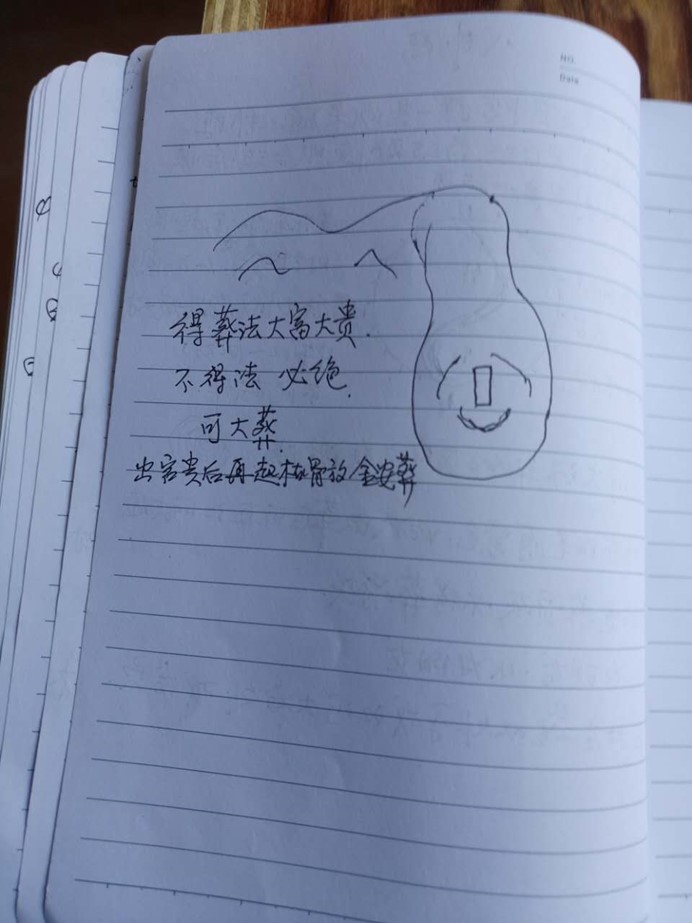 NO.
Date
得葬法大富大贵.
不得法 必绝.
可大葬.
出富贵后再起枯骨放金安葬